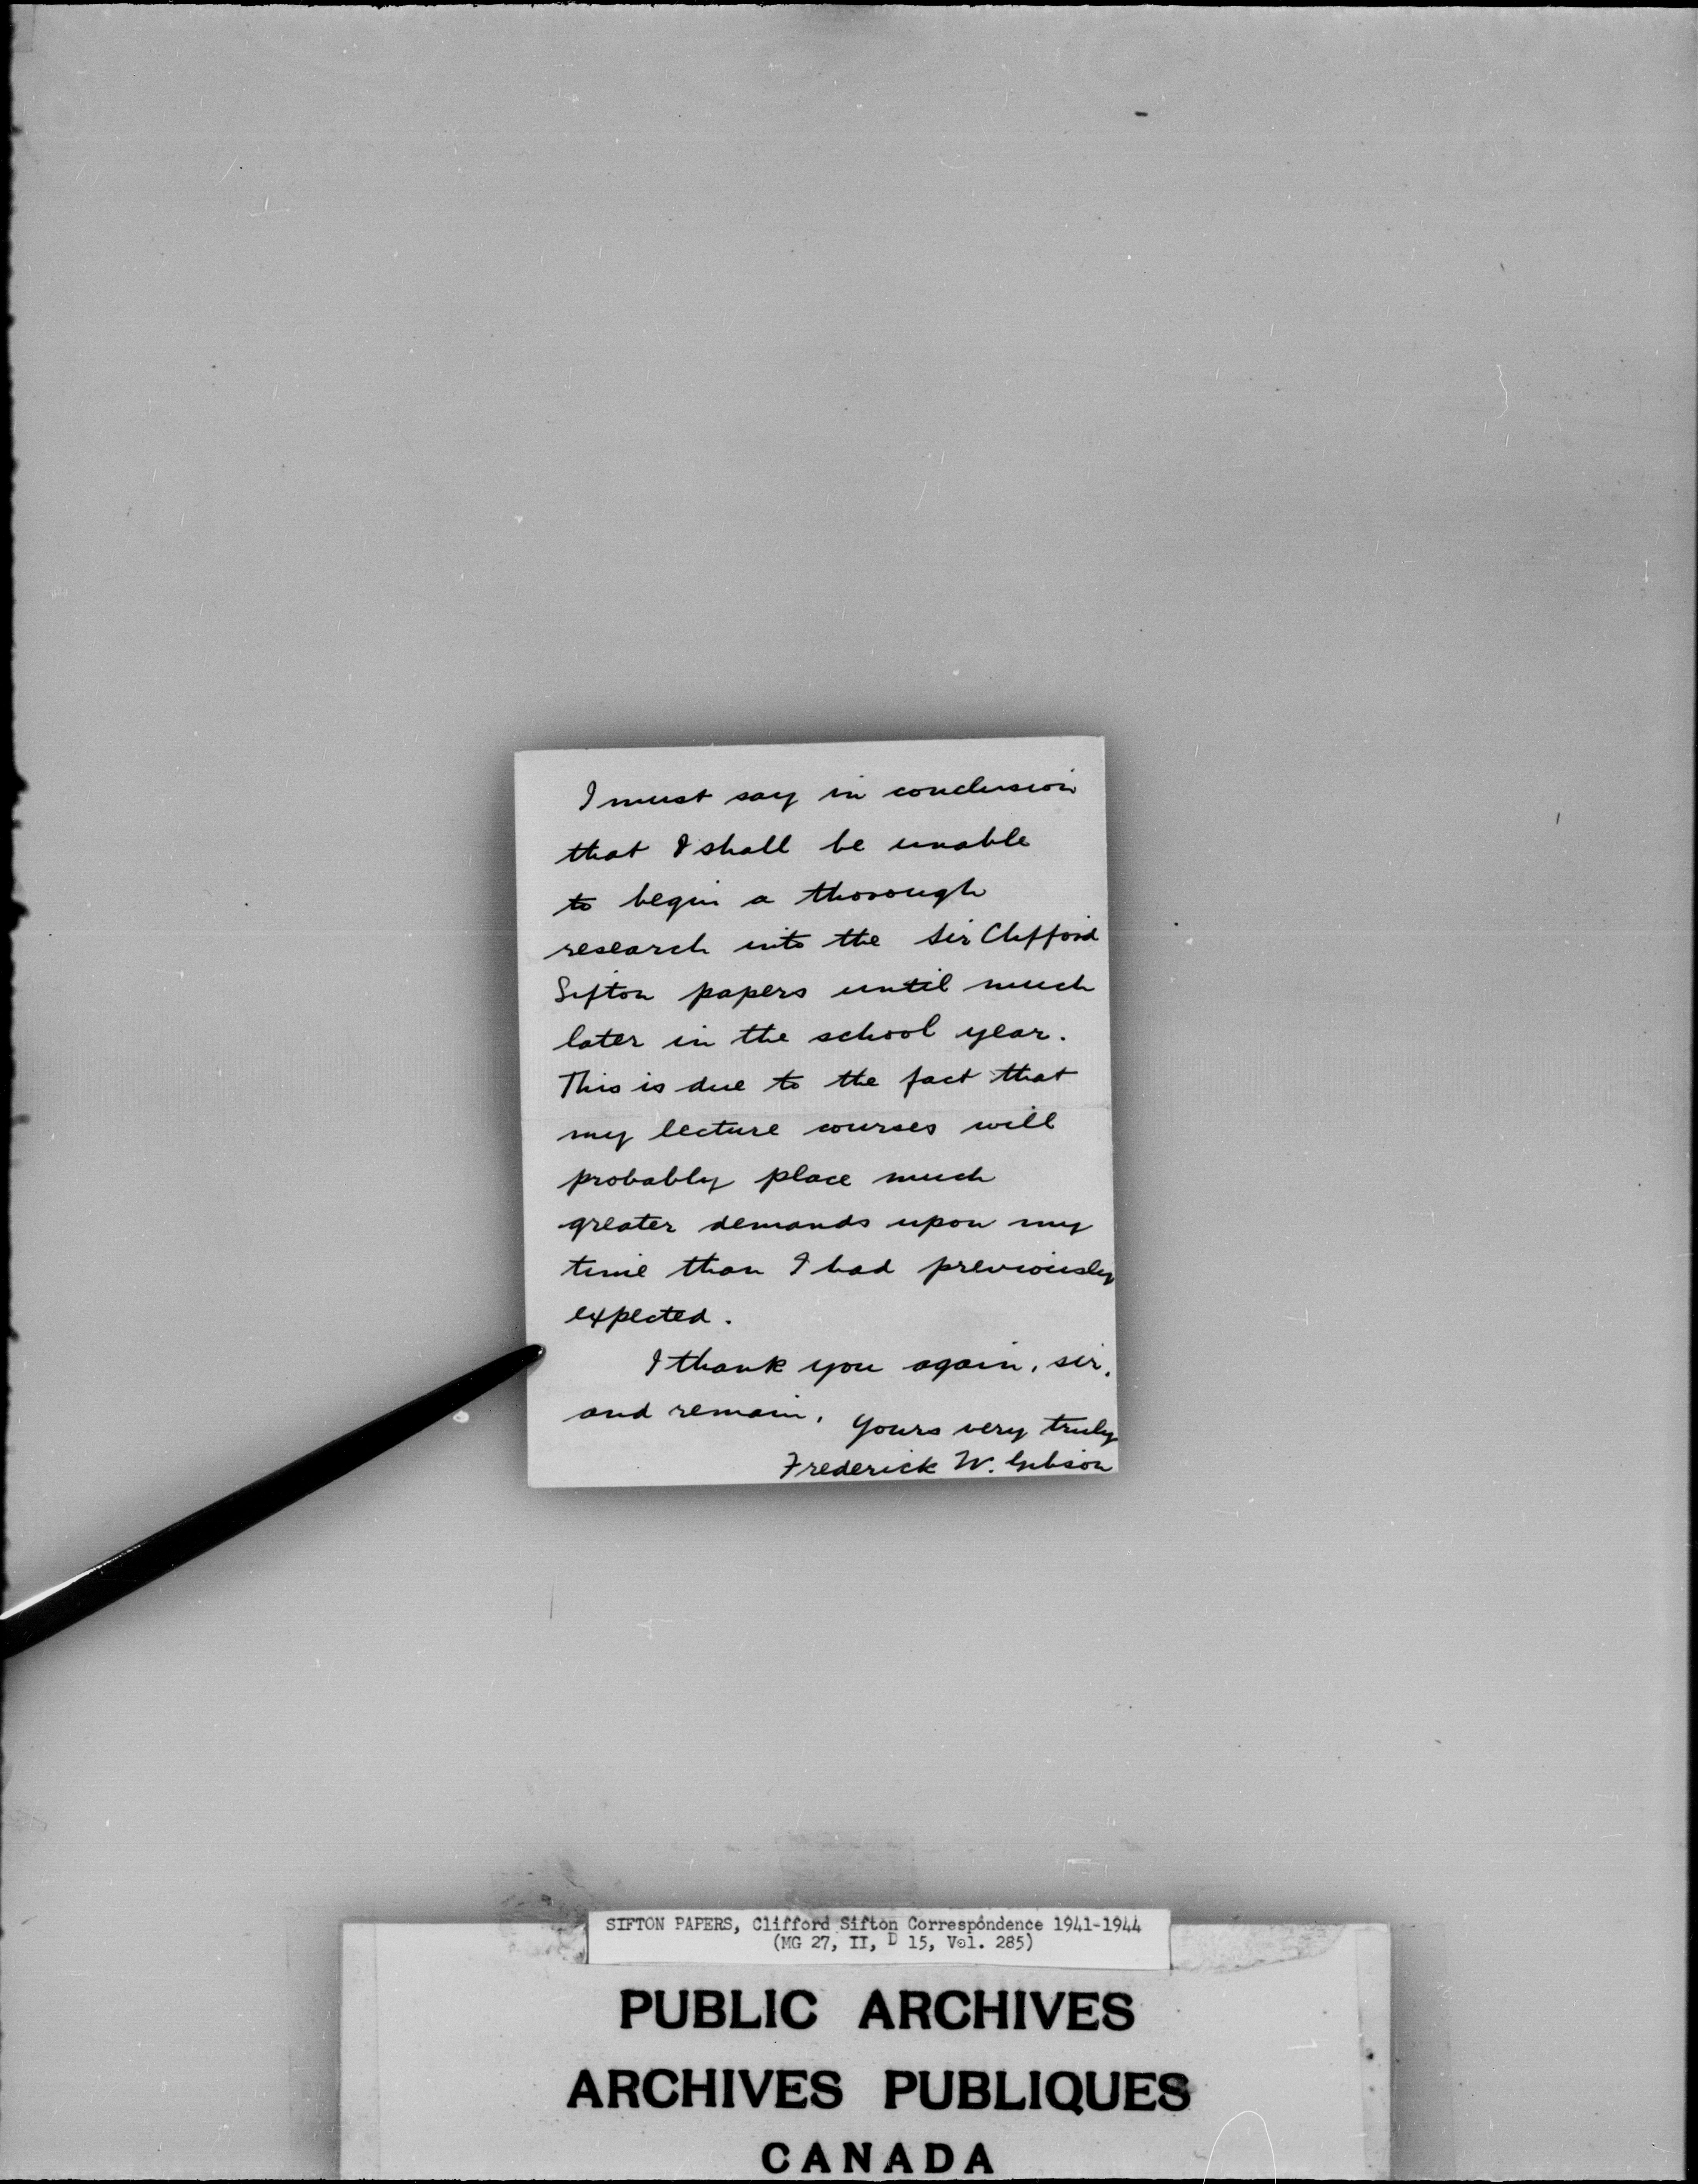 I must say in conclusion
that I shall be unable
to begin a thorough
research into the Sir Clifford
Sifton papers until much
later in the school year.
This is due to the fact that
my lecture courses will
probably place much
greater demands upon my
time than I had previously
expected.
I thank you again, sir,
and remain,
Yours very truly
Frederick W. Gibson
SIFTON PAPERS, Clifford Sifton Correspondence 1941-1944
(MG 27, II, D 15, Vol. 285)
PUBLIC ARCHIVES
ARCHIVES PUBLIQUES
CANADA